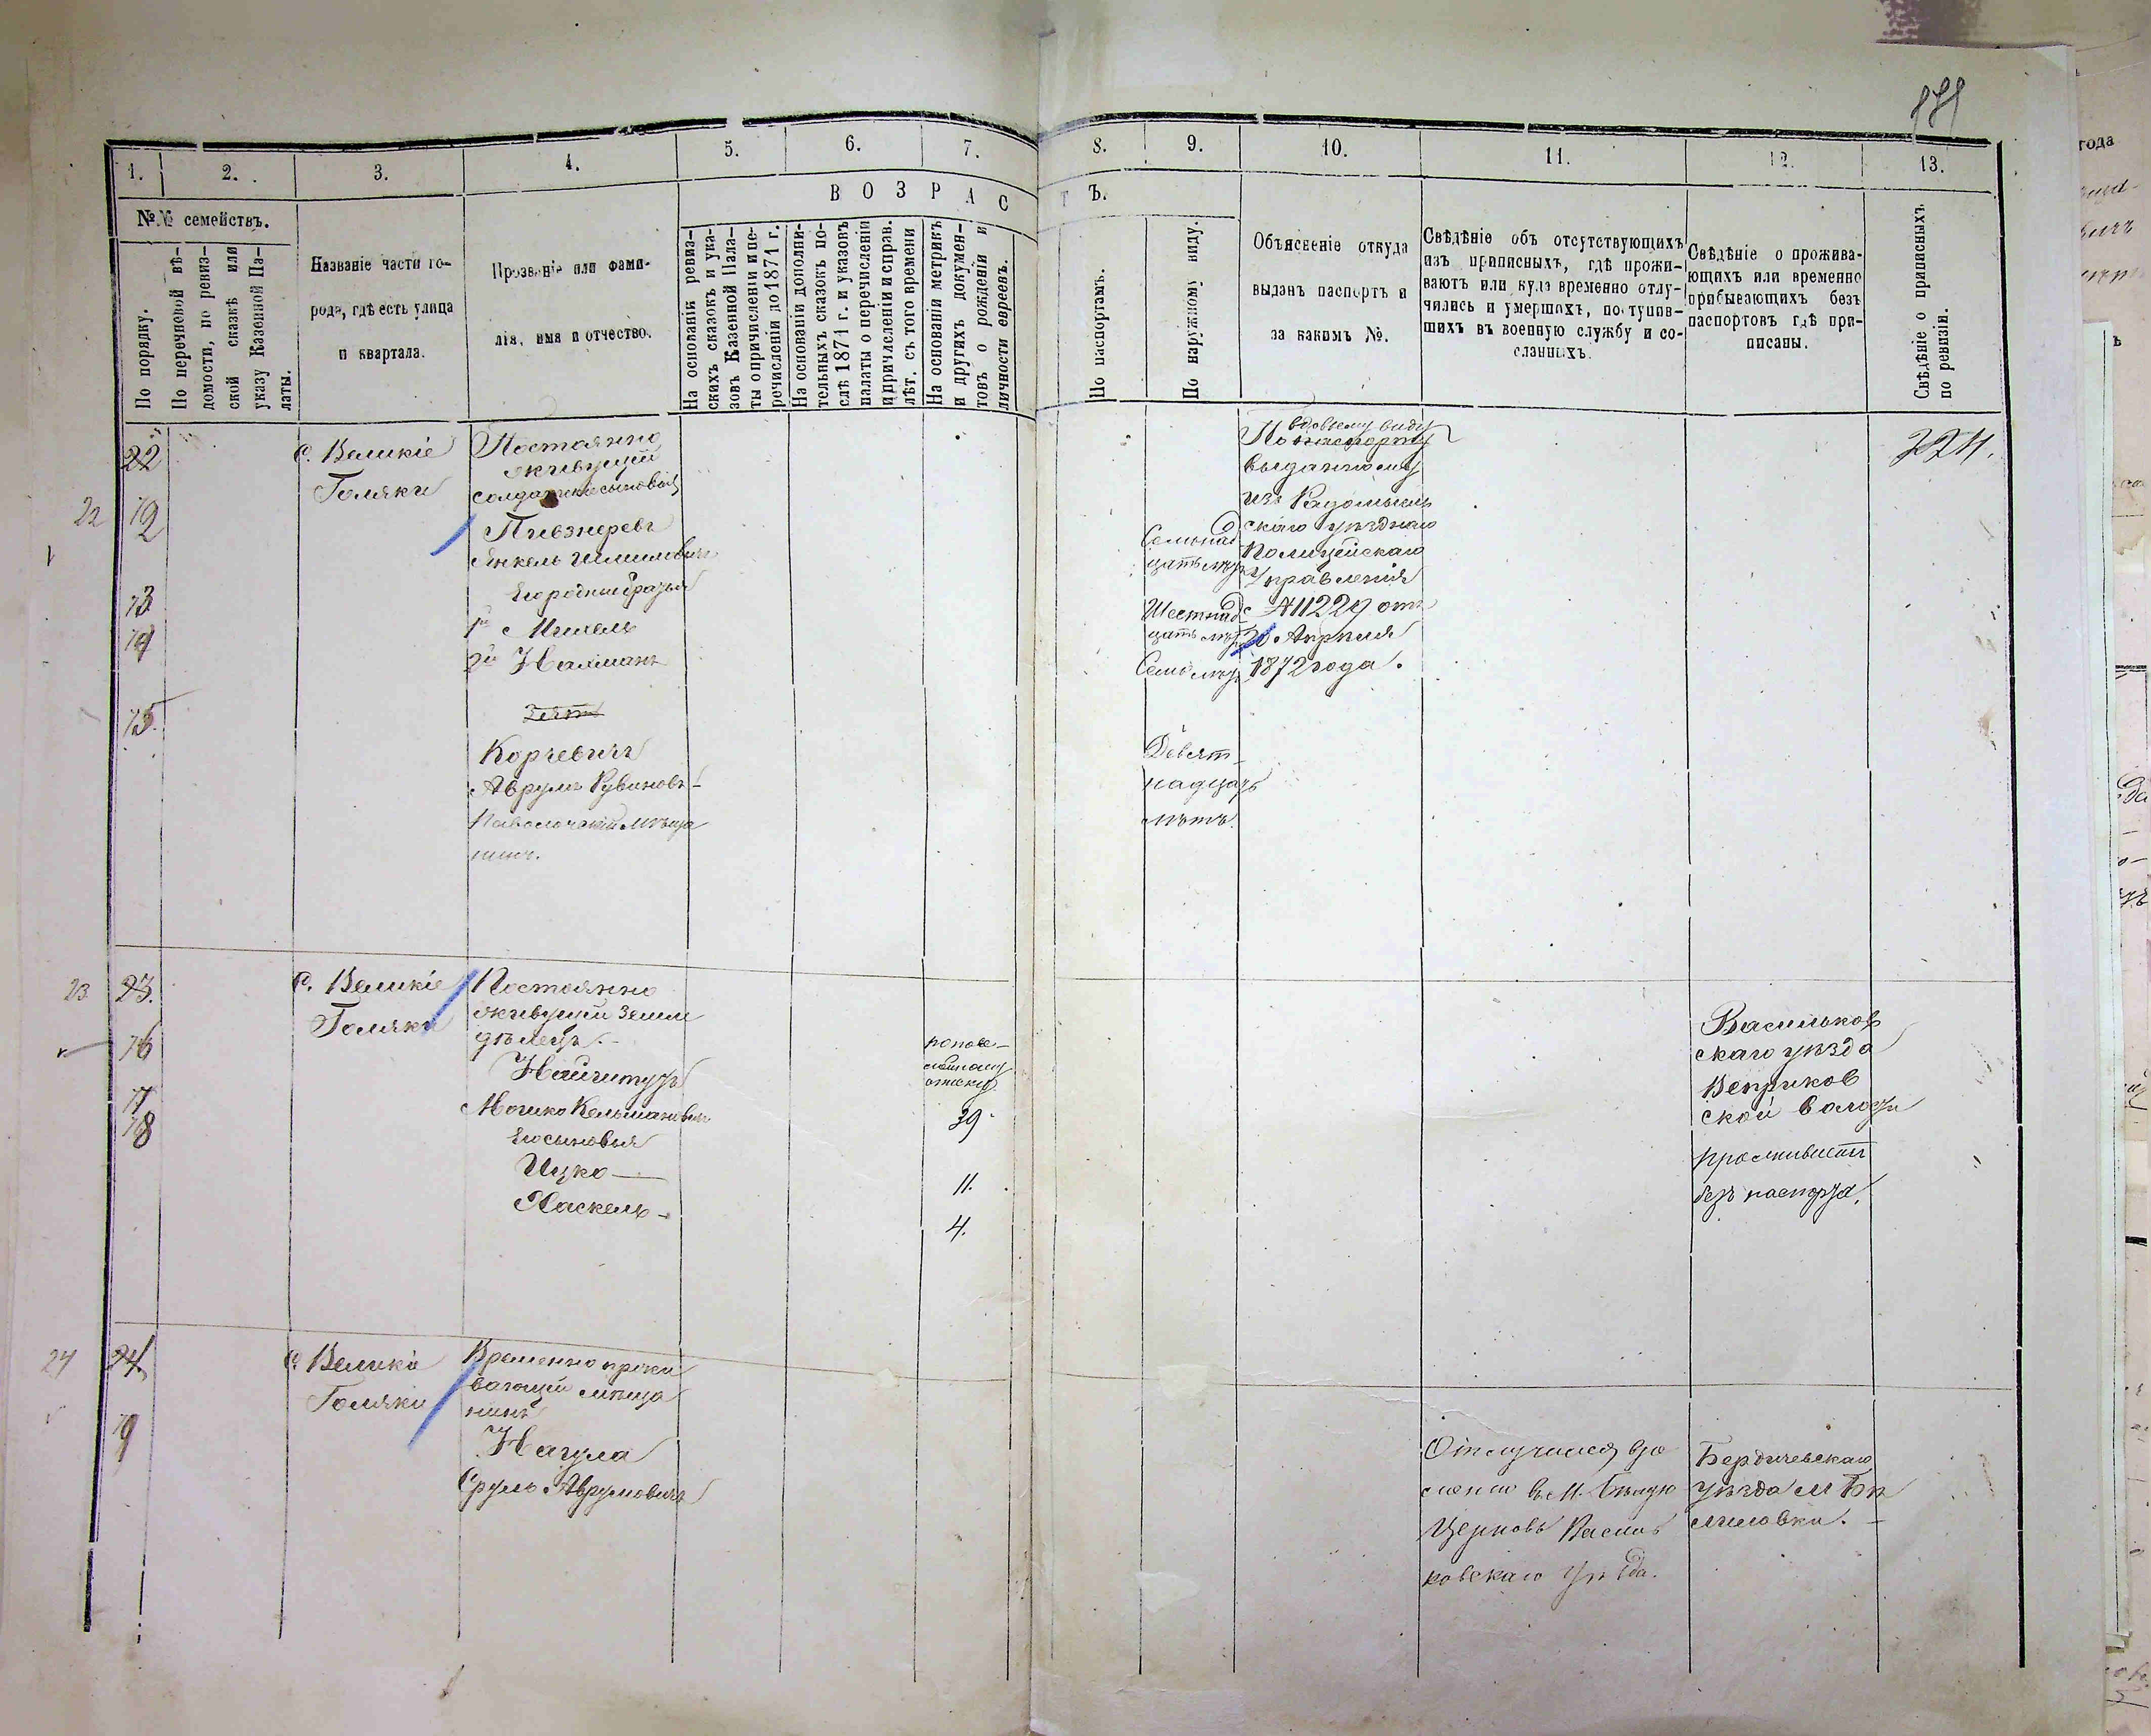 1. 2. 3. 4. 5. 6. 7. 8. 9. 10. 11. 12. 13.
В О З Р А С Т Ъ.
№№ семействъ.
По порядку.
По перечневой вѣ-
домости, по ревиз-
ской сказкѣ или
указу Казенной Па-
латы.
Названіе части го-
рода, гдѣ есть улица
и квартала.
Прозваніе или фами-
лія, имя и отчество.
На основаніи ревиз-
скихъ сказокъ и ука-
зовъ Казенной Пала-
ты о причисленіи и пе-
речисленіи до 1871 г.
На основаніи дополни-
тельныхъ сказокъ по-
слѣ 1871 г. и указовъ
палаты о перечисленіи
и причисленіи и справ.
лѣт. съ того времени
На основаніи метрикъ
и другихъ докумен-
товъ о рожденіи и
личности евреевъ.
По паспортамъ.
По наружному виду.
Объясненіе откуда
выданъ паспортъ и
за какимъ №.
Свѣдѣніе объ отсутствующихъ
изъ приписныхъ, гдѣ прожи-
ваютъ или куда временно отлу-
чились и умершихъ, поступив-
шихъ въ военную службу и со-
сланныхъ.
Свѣдѣніе о прожива-
ющихъ или временно
прибывающихъ безъ
паспортовъ гдѣ при-
писаны.
Свѣдѣніе о приписныхъ
по ревизіи.
22
22
12
13
14
15.
с. Великіе
Голяки
Постоянно
живущій
Янкель
1й Михель
2й Нахманъ
Корчевичъ
Аврумъ Рувиновъ
Паволочскій мѣща
нинъ.
Семнад
цать лѣтъ
Шестнад
цать лѣтъ
Семь лѣтъ
Девят
надцать
лѣтъ.
вдовьему виду
По паспорту
выданному
изъ Радомысль
скаго уѣзднаго
Полицейскаго
Управленія
№ 11229 отъ
Апрѣля
1872 года.
224.
23
23.
16
17
18
с. Великіе
Голяки
Постоянно
живущій Земле
дѣлецъ.
Мошко Кельмановичъ
Его сыновья
Ицко
Хаскель
по посе-
мейному
списку
39
11.
4.
Васильков
скаго уѣзда
Веприков
ской волости
проживаетъ
безъ паспорта.
24
24.
19
с. Великіе
Голяки
Временно прожи
вающій мѣща
нинъ
Нагула
Сруль Аврумовичъ
Отлучился
въ М. Бѣлую
Церковь Василь
ковскаго Уѣзда.
Бердичевскаго
уѣзда М Бѣ
лиловки.